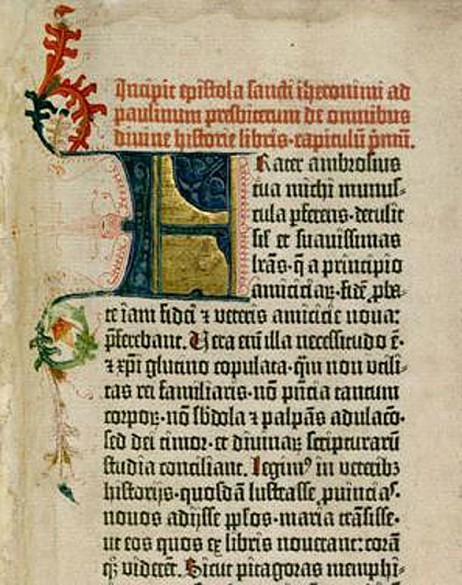 Incipit epistola sancti iheronimi ad
paulinum presbiterum de omnibus
divine historie libris·capitulū pⁱmū.
FRater ambrosius
tua michi munus-
cula pferens·detulit
sil' et suavissimas
lrās·q̄ a principio
amicicia℞·fidē pba-
te iam fidei ⁊ veteris amicicie nova:
pferebant. Vera eni illa necessitudo ē·
⁊ xpi glutino copulata·qm non utili-
tas rei familiaris·nō pn̄cia tantum
corpo℞·nō sbdola ⁊ palpās adulacō·
sed dei timor·et divina℞ scripturarū
studia conciliant. Legimꝰ in veteribꝫ
historijs·quosdā lustrasse puinciaˢ·
novos adijsse pplos·maria trāsisse·
ut eos quos ex libris noverant:corā
qꝫ viderēt. Sicut pitagoras memphi-